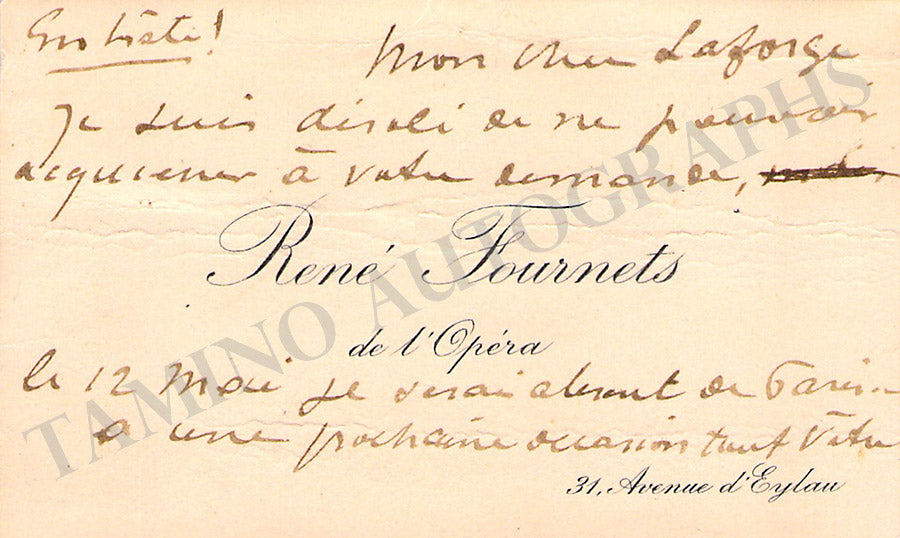 En hâte!
Mon cher Laforge
Je suis désolé de ne pouvoir
acquiescer à votre demande,
René Fournets
de l'Opéra
le 12 Mai je serai absent de Paris
à une prochaine occasion tout Vôtre
31, Avenue d'Eylau
TAMINO AUTOGRAPHS